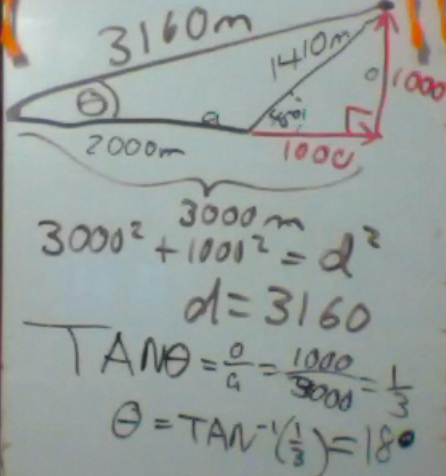 3160m
1410m
θ
45°
o
1000
a
2000m
1000
3000m
3000² + 1000² = d²
d = 3160
TANθ = o/a = 1000/3000 = 1/3
θ = TAN⁻¹(1/3) = 18°